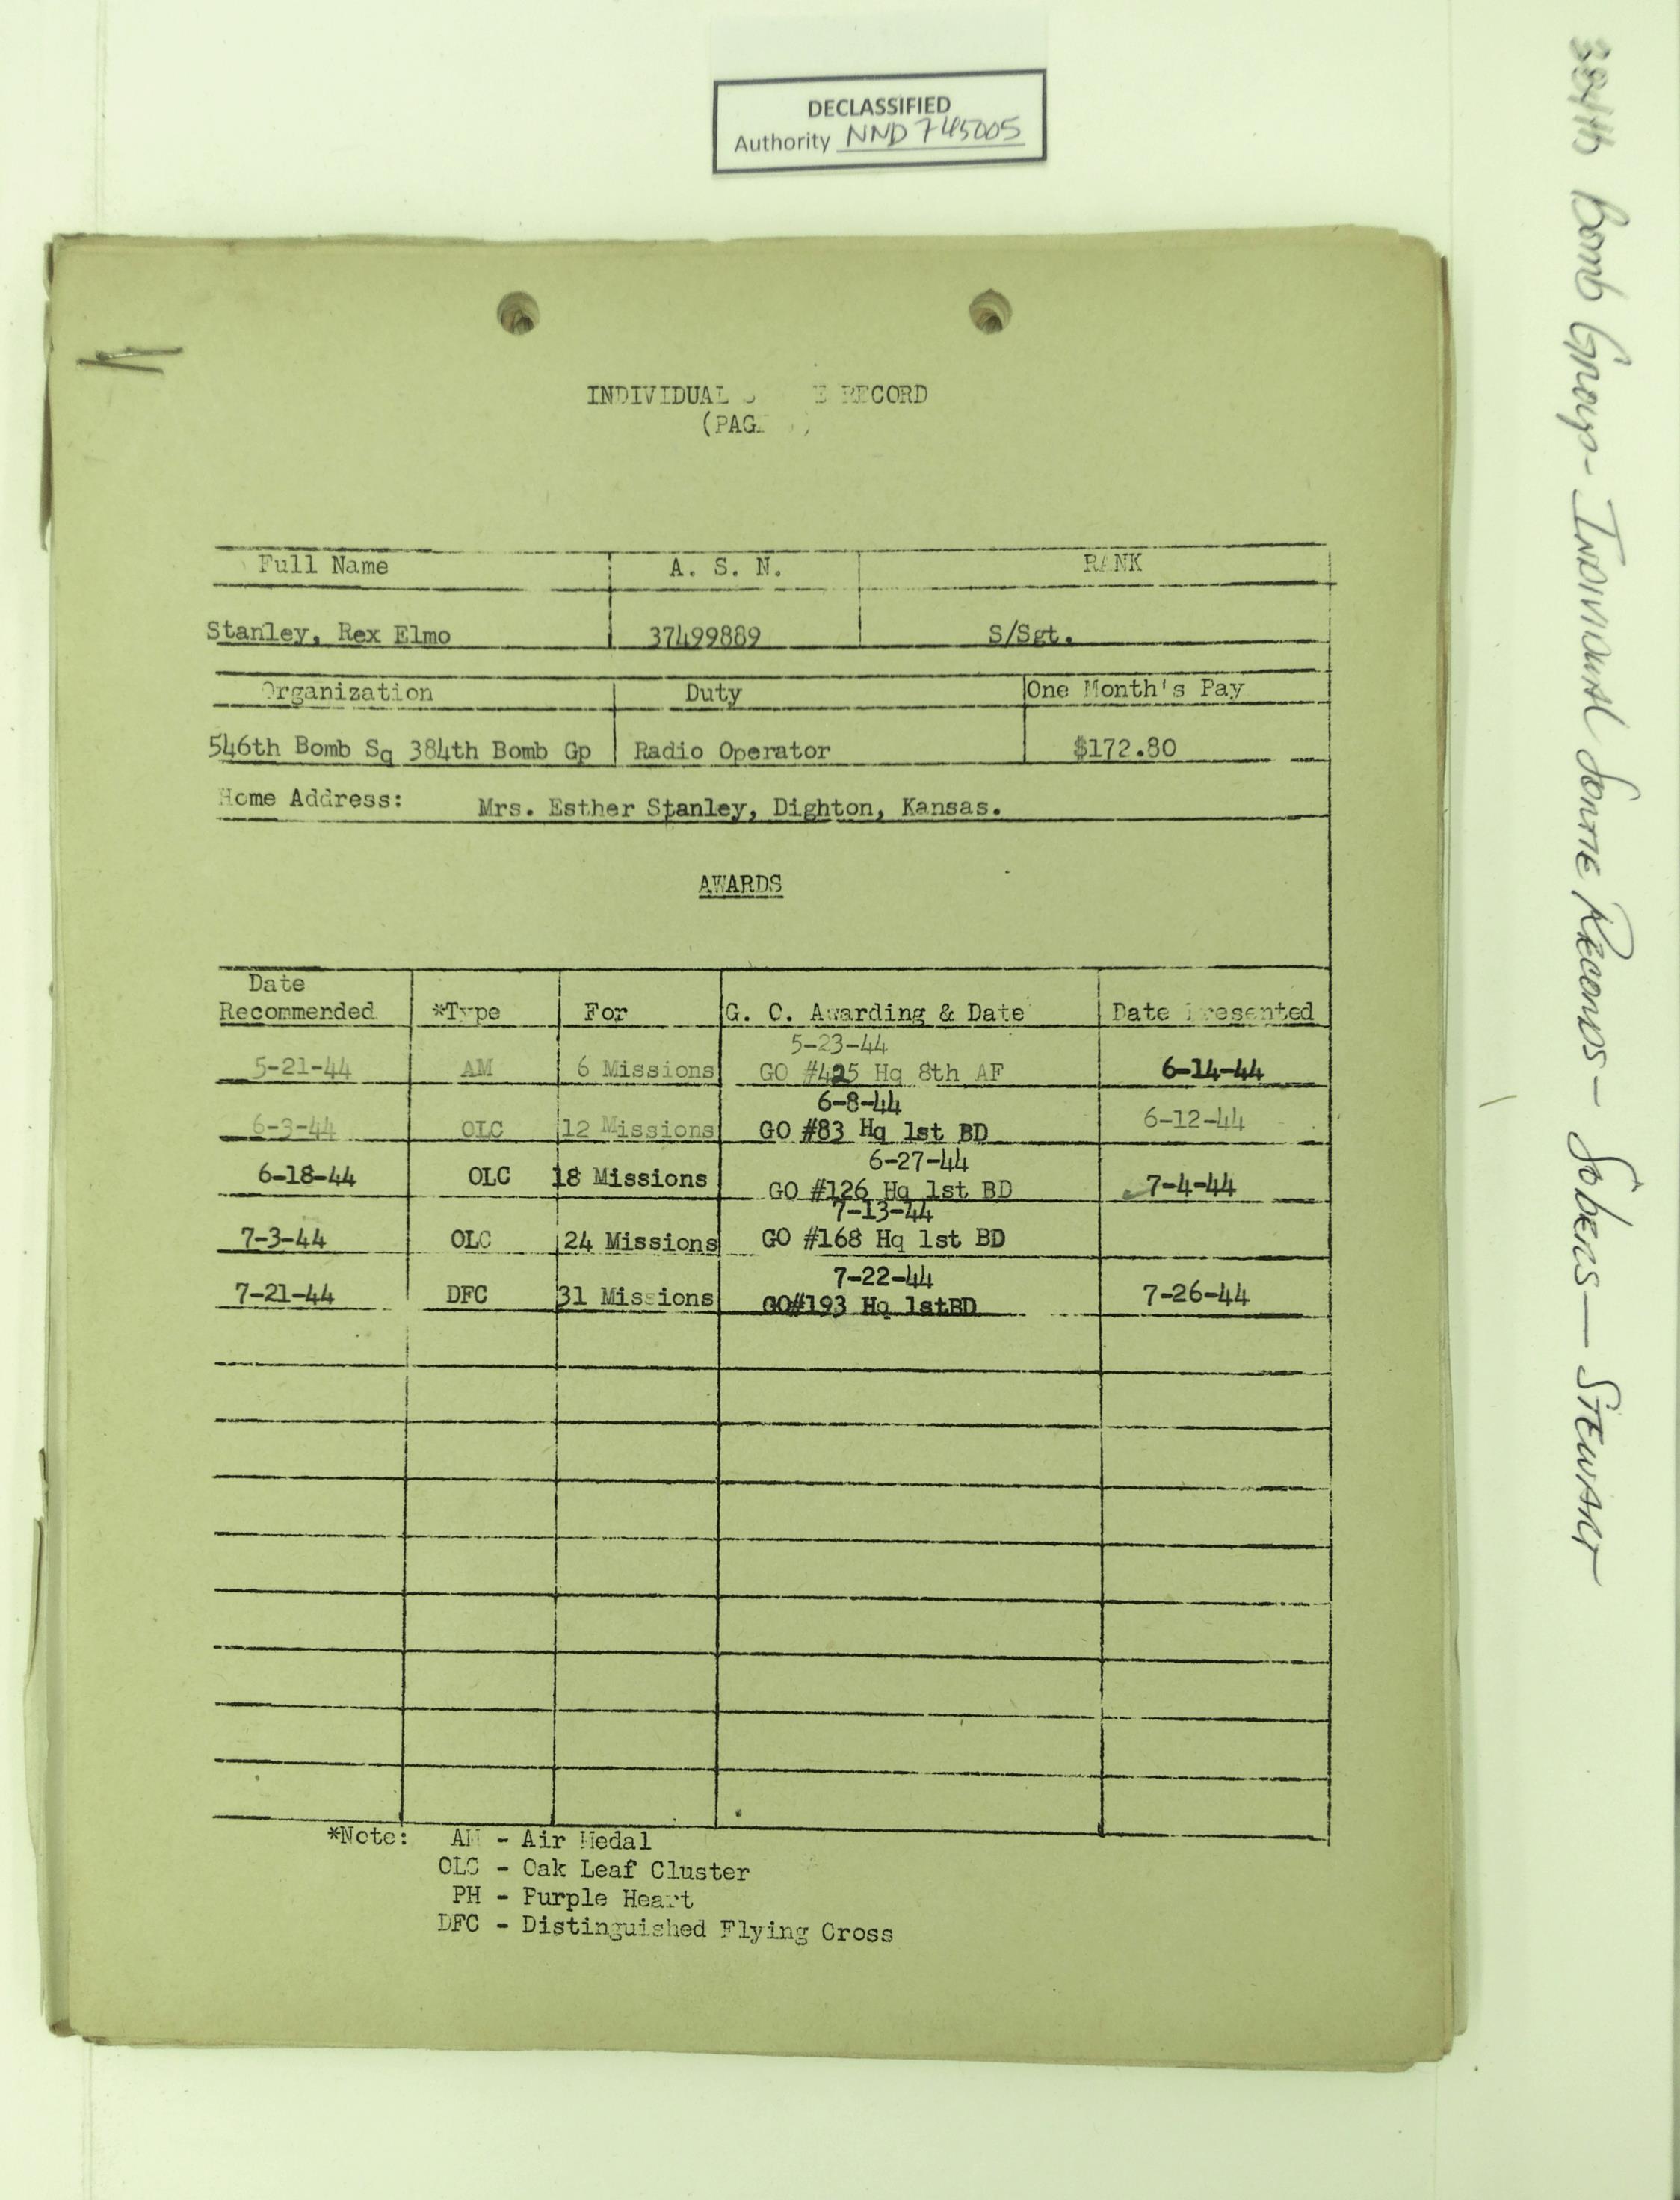 DECLASSIFIED
Authority NND 745005
384th Bomb Group - Individual Sortie Records - Sobers - Stewart
INDIVIDUAL RECORD
Full Name A. S. N. RANK
Stanley, Rex Elmo 37499889 S/Sgt.
Organization Duty One Month's Pay
546th Bomb Sq 384th Bomb Gp Radio Operator $172.80
Home Address: Mrs. Esther Stanley, Dighton, Kansas.
AWARDS
Date
Recommended *Type For G. C. Awarding & Date Date Presented
5-23-44
5-21-44 AM 6 Missions GO #425 Hq 8th AF 6-14-44
6-8-44
6-3-44 OLC 12 Missions GO #83 Hq 1st BD 6-12-44
6-27-44
6-18-44 OLC 18 Missions GO #126 Hq 1st BD 7-4-44
7-13-44
7-3-44 OLC 24 Missions GO #168 Hq 1st BD
7-22-44
7-21-44 DFC 31 Missions GO#193 Hq 1stBD 7-26-44
*Note: AM - Air Medal
OLC - Oak Leaf Cluster
PH - Purple Heart
DFC - Distinguished Flying Cross